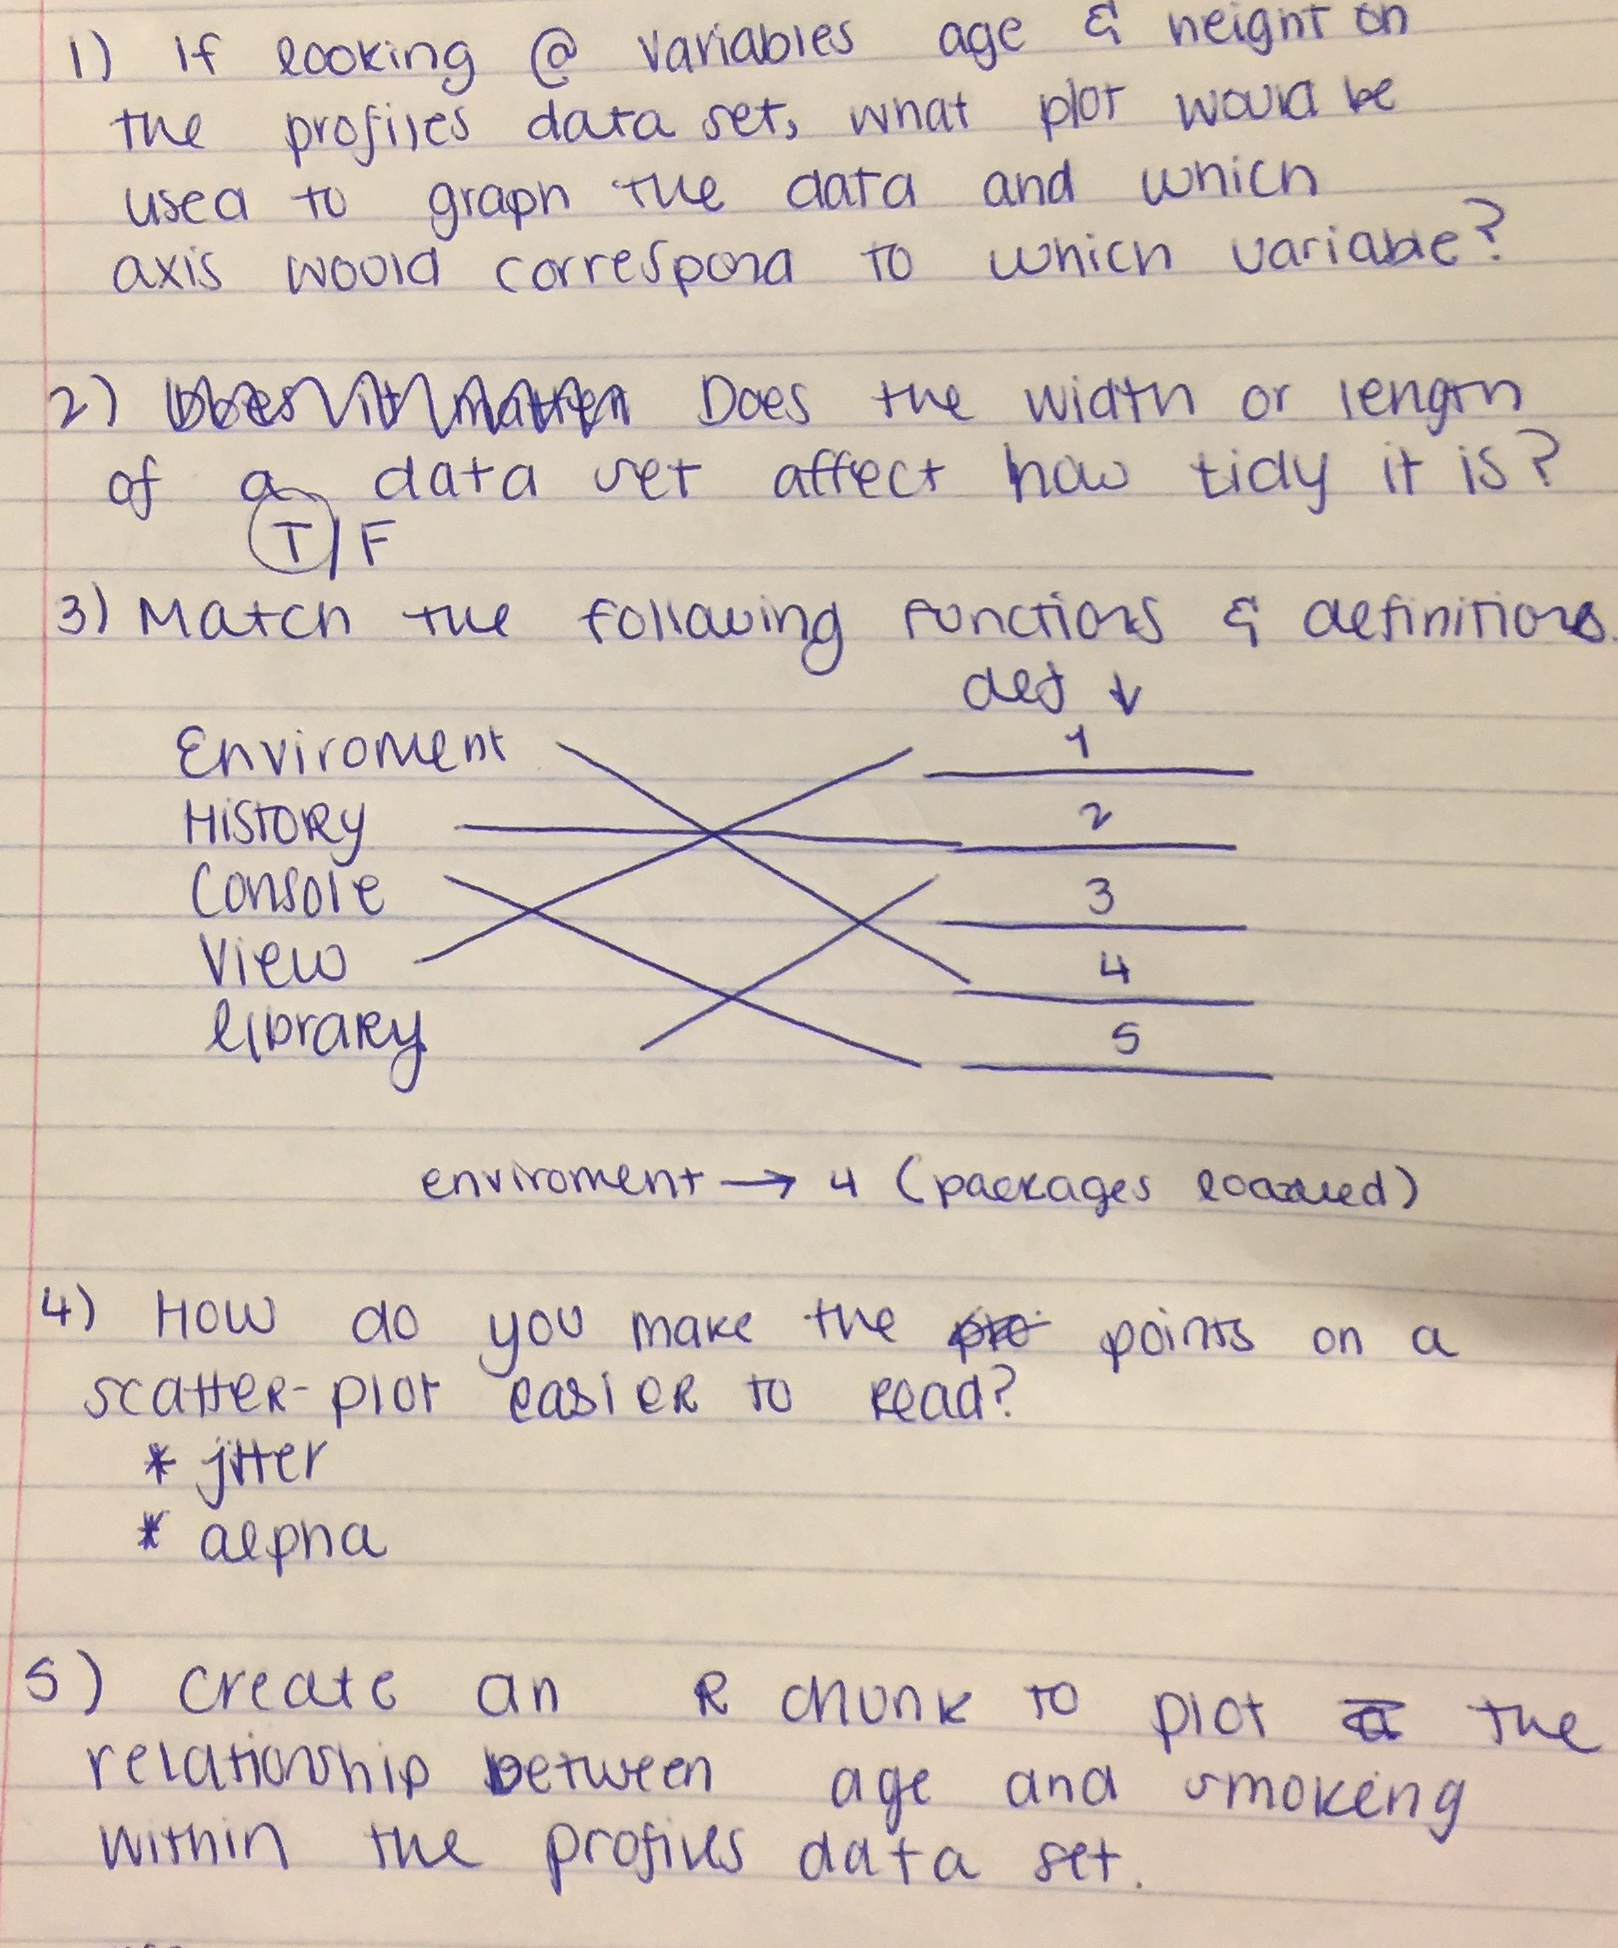 1) If looking @ variables age & height on
the profiles data set, what plot would be
used to graph the data and which
axis would correspond to which variable?
2) Does the width or length
of a data set affect how tidy it is?
T/F
3) Match the following functions & definitions.
def ↓
Enviroment 1
History 2
Console 3
View 4
library 5
enviroment → 4 (packages loaded)
4) How do you make the points on a
scatter-plot easier to read?
* jitter
* alpha
5) Create an R chunk to plot the
relationship between age and smoking
within the profiles data set.